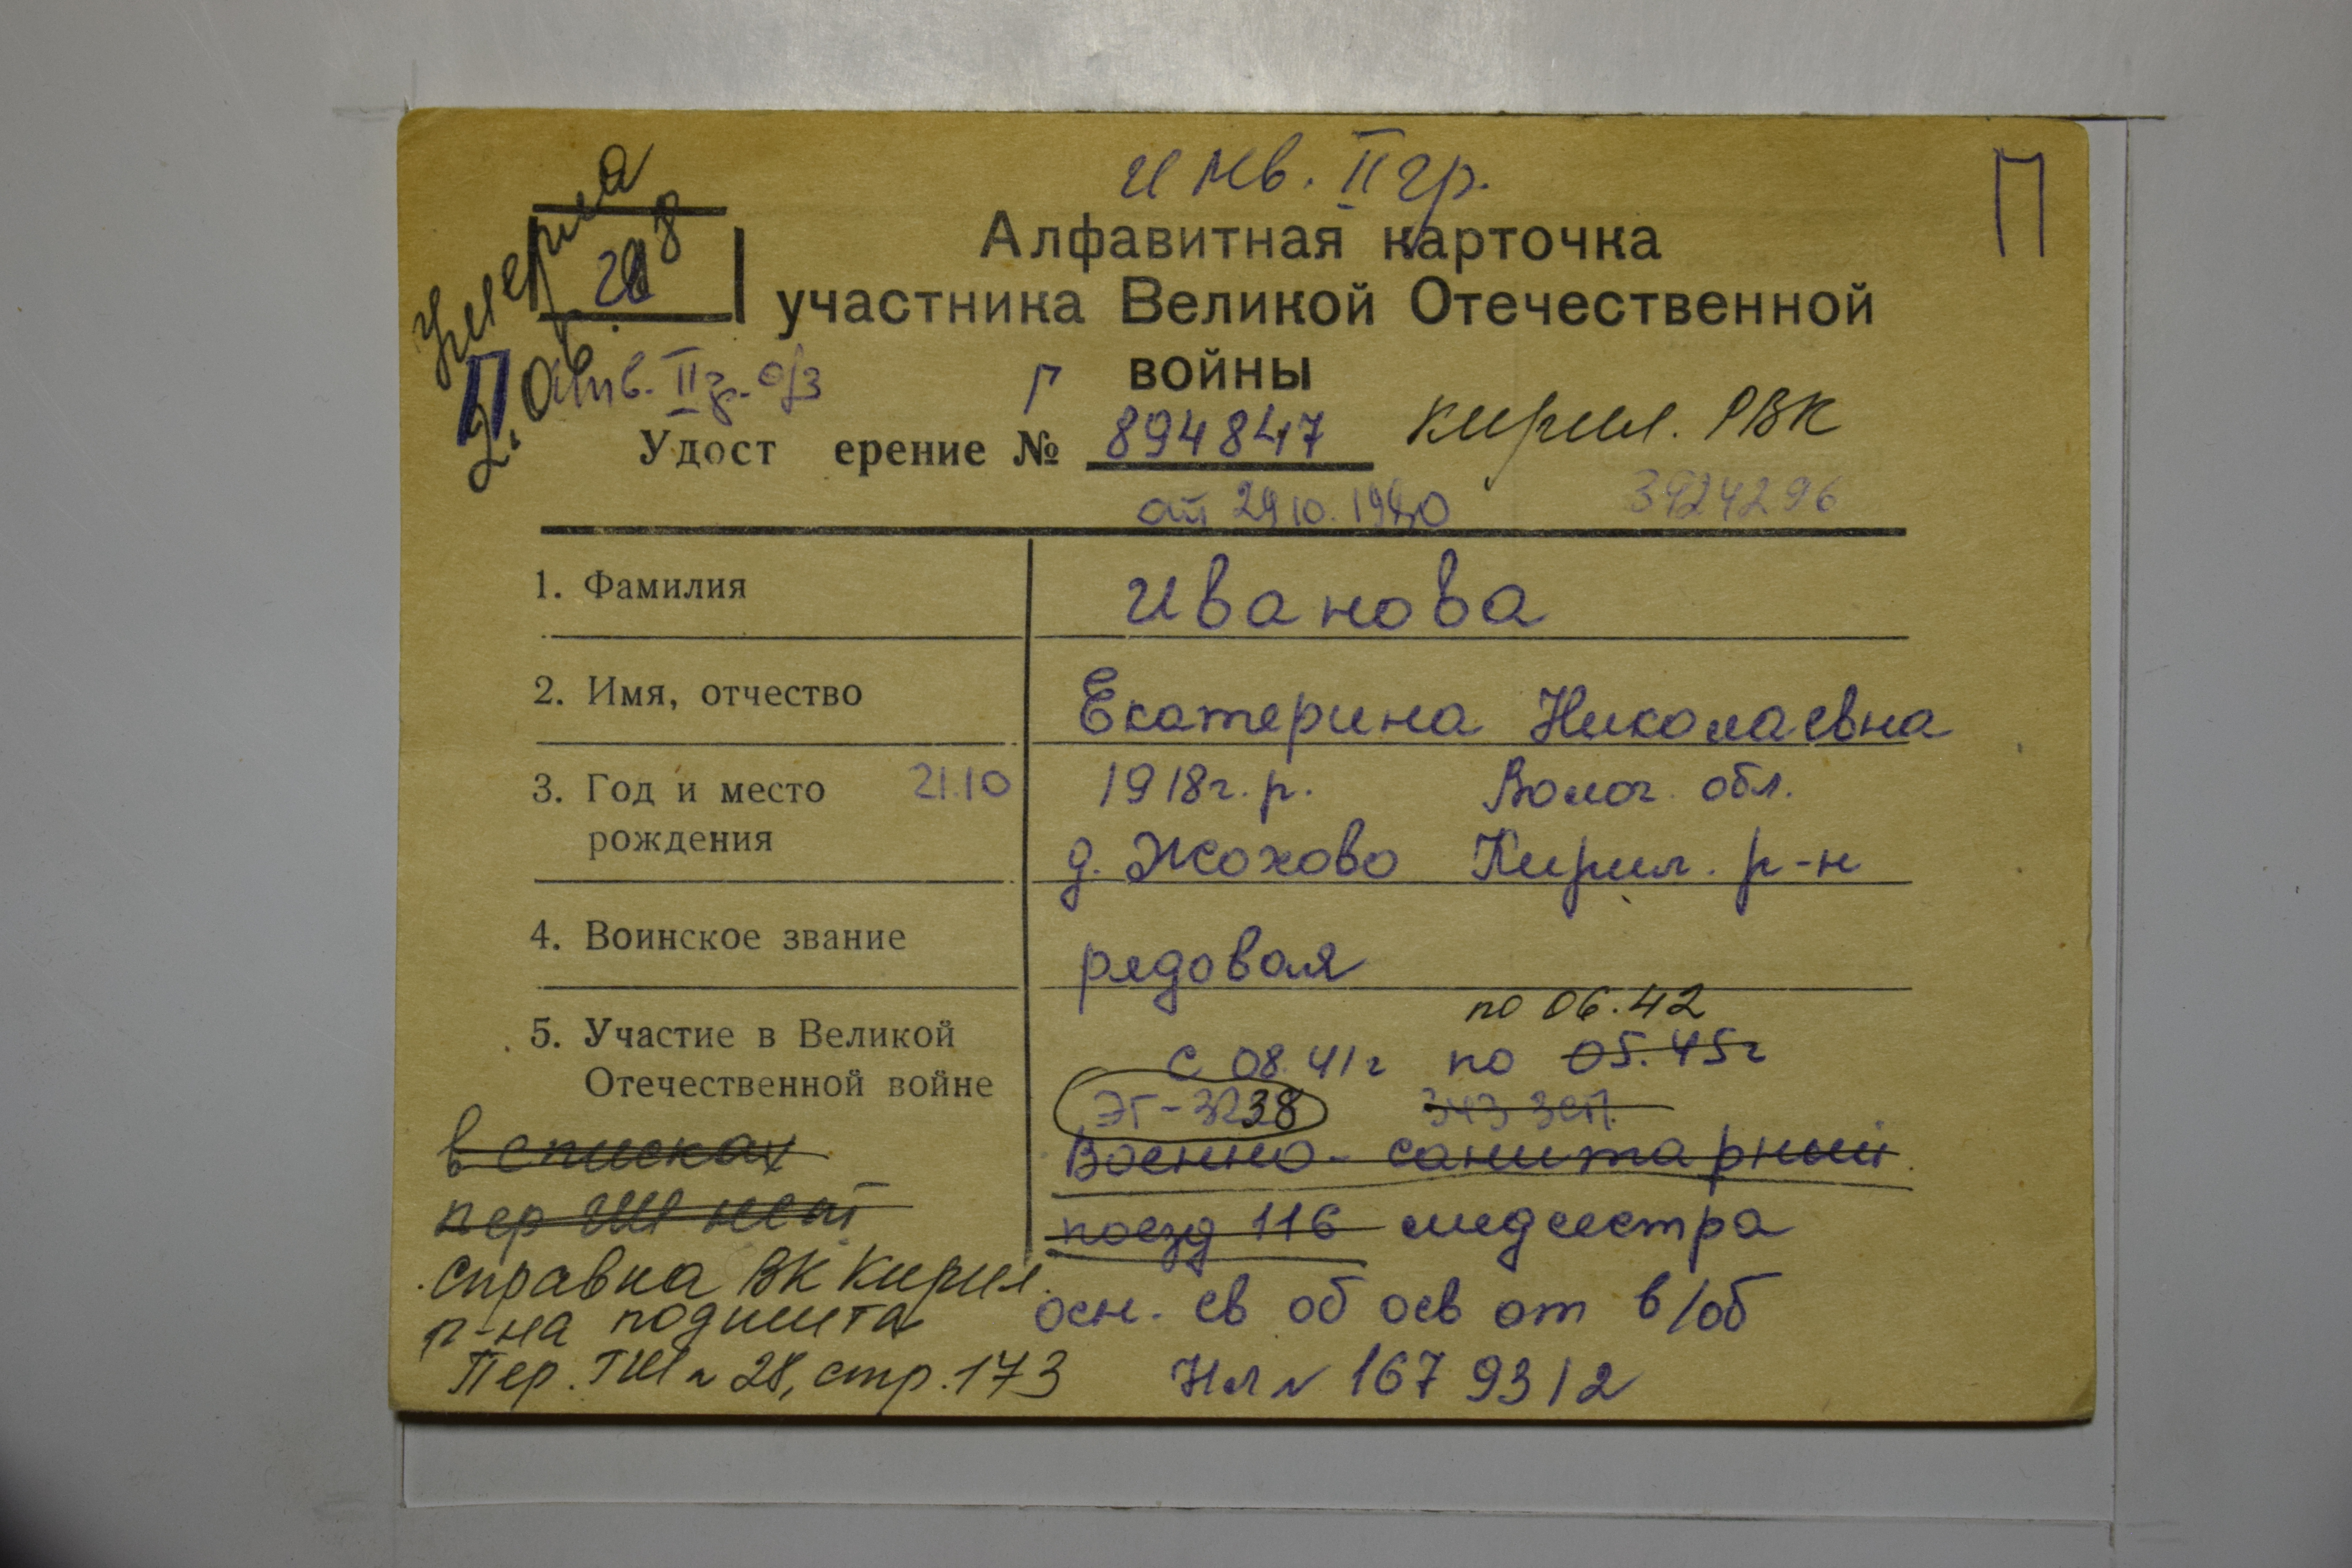 инв. II гр.
П
Умерла
2.06.98
Алфавитная карточка
участника Великой Отечественной
войны
П
инв. II гр. о/з
Г
Удост ерение № 894847
Кирил. РВК
от 29.10.1980
3924296
1. Фамилия Иванова
2. Имя, отчество Екатерина Николаевна
3. Год и место 21.10 1918г.р. Волог. обл.
рождения д. Жохово Кирил. р-н
4. Воинское звание рядовая
по 06.42
5. Участие в Великой с 08.41г по 05.45г
Отечественной войне ЭГ-3238 343 ЗСП.
в списках Военно-санитарный
пер ГШ нет поезд 116 медсестра
справка ВК Кирил.
р-на подшита осн. св об осв от в/об
Пер. ГШ № 28, стр. 173 НМ № 167 93/2